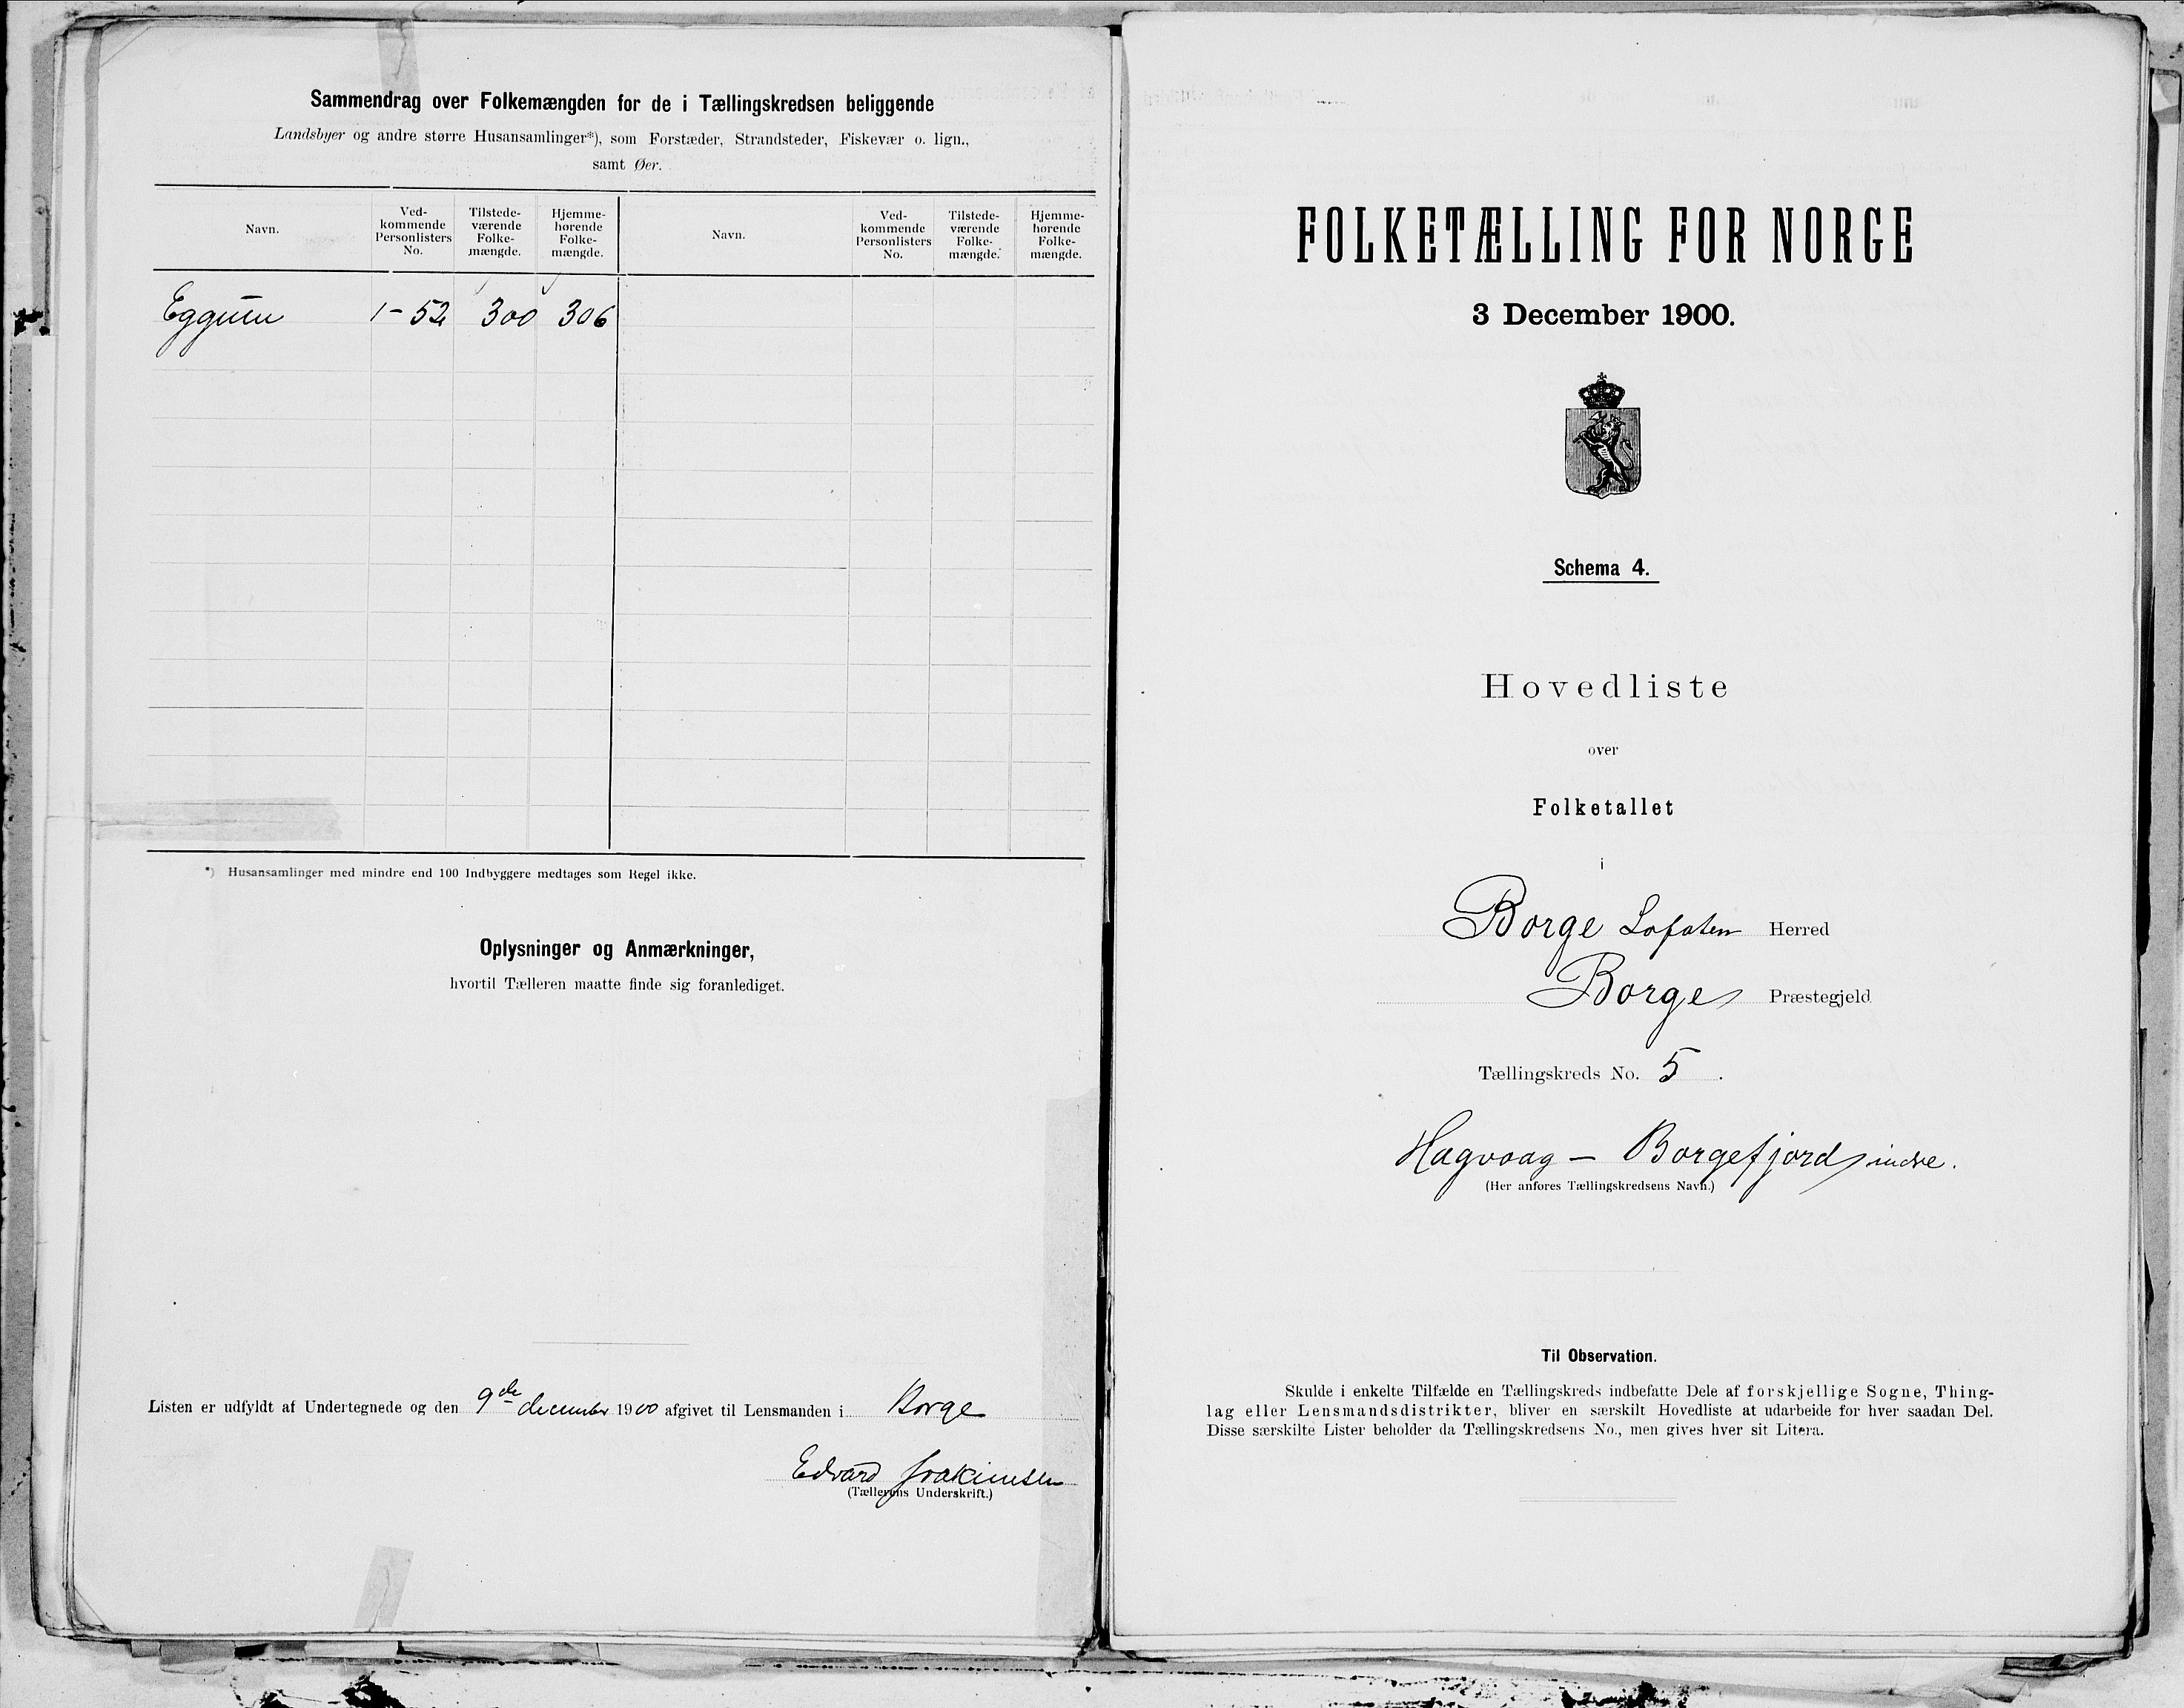 Sammendrag over Folkemængden for de i Tællingskredsen beliggende
Landsbyer og andre større Husansamlinger*), som Forstæder, Strandsteder, Fiskevær o. lign.,
samt Øer.
Navn. Ved-kommende Personlisters No. Tilstede-værende Folke-mængde. Hjemme-hørende Folke-mængde. Navn. Ved-kommende Personlisters No. Tilstede-værende Folke-mængde. Hjemme-hørende Folke-mængde.
Eggum 1-52 300 306
*) Husansamlinger med mindre end 100 Indbyggere medtages som Regel ikke.
Oplysninger og Anmærkninger,
hvortil Tælleren maatte finde sig foranlediget.
Listen er udfyldt af Undertegnede og den 9de december 1900 afgivet til Lensmanden i Borge
Edvard Joakimsen
(Tællerens Underskrift.)
FOLKETÆLLING FOR NORGE
3 December 1900.
Schema 4.
Hovedliste
over
Folketallet
i
Borge Lofoten Herred
Borge Præstegjeld
Tællingskreds No. 5.
Hagvaag - Borgefjord indre.
(Her anføres Tællingskredsens Navn.)
Til Observation.
Skulde i enkelte Tilfælde en Tællingskreds indbefatte Dele af forskjellige Sogne, Thing-
lag eller Lensmandsdistrikter, bliver en særskilt Hovedliste at udarbeide for hver saadan Del.
Disse særskilte Lister beholder da Tællingskredsens No., men gives hver sit Litera.